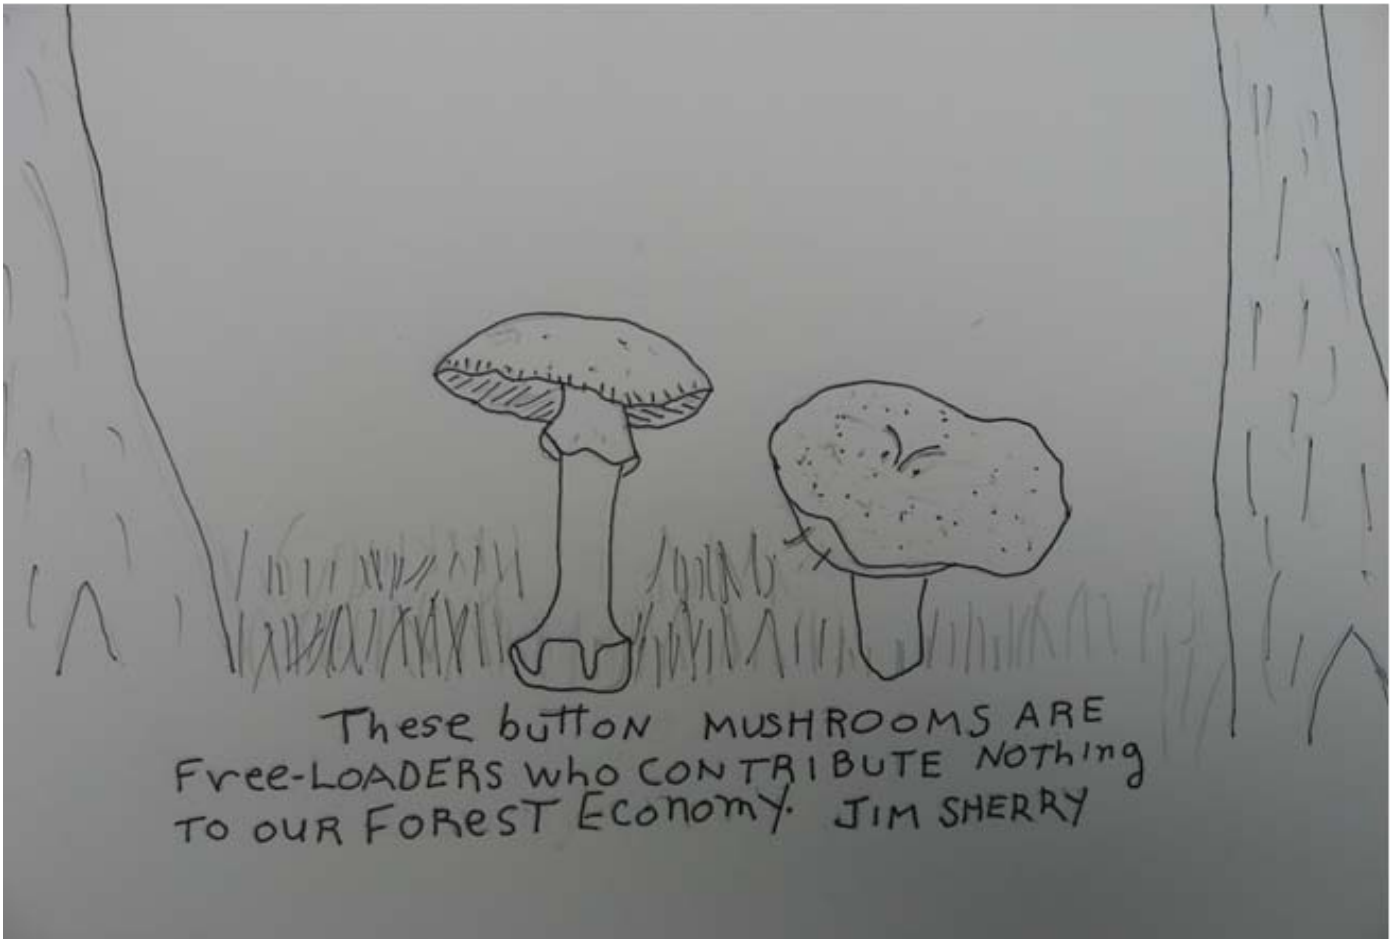 These button MUSHROOMS ARE
Free-LOADERS who CONTRIBUTE Nothing
TO OUR FOREST Economy. JIM SHERRY